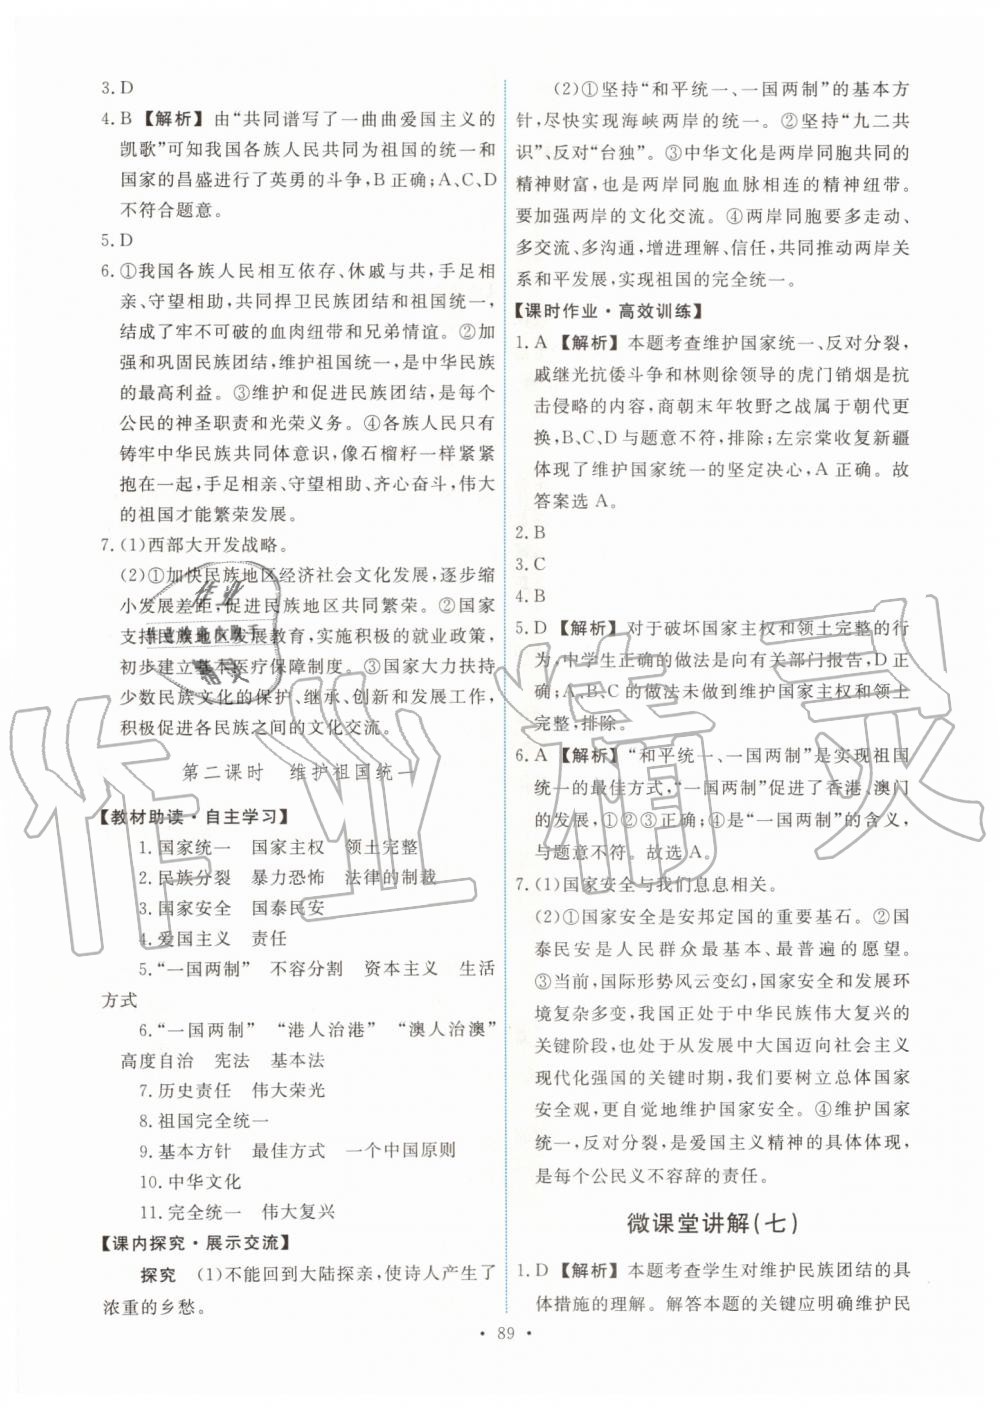 3. D
4. B 【解析】 由“共同谱写了一曲曲爱国主义的
凯歌”可知我国各族人民共同为祖国的统一和
国家的昌盛进行了英勇的斗争,B正确;A、C、D
不符合题意。
5. D
6. ①我国各族人民相互依存、休戚与共,手足相
亲、守望相助,共同捍卫民族团结和祖国统一,
结成了牢不可破的血肉纽带和兄弟情谊。②加
强和巩固民族团结,维护祖国统一,是中华民族
的最高利益。③维护和促进民族团结,是每个
公民的神圣职责和光荣义务。④各族人民只有
铸牢中华民族共同体意识,像石榴籽一样紧紧
抱在一起,手足相亲、守望相助、齐心奋斗,伟大
的祖国才能繁荣发展。
7. (1)西部大开发战略。
(2)①加快民族地区经济社会文化发展,逐步缩
小发展差距,促进民族地区共同繁荣。②国家
支持民族地区发展教育,实施积极的就业政策,
初步建立基本医疗保障制度。③国家大力扶持
少数民族文化的保护、继承、创新和发展工作,
积极促进各民族之间的文化交流。
第二课时 维护祖国统一
【教材助读·自主学习】
1. 国家统一 国家主权 领土完整
2. 民族分裂 暴力恐怖 法律的制裁
3. 国家安全 国泰民安
4. 爱国主义 责任
5. “一国两制” 不容分割 资本主义 生活
方式
6. “一国两制” “港人治港” “澳人治澳”
高度自治 宪法 基本法
7. 历史责任 伟大荣光
8. 祖国完全统一
9. 基本方针 最佳方式 一个中国原则
10. 中华文化
11. 完全统一 伟大复兴
【课内探究·展示交流】
探究 (1)不能回到大陆探亲,使诗人产生了
浓重的乡愁。
(2)①坚持“和平统一、一国两制”的基本方
针,尽快实现海峡两岸的统一。②坚持“九二共
识”、反对“台独”。③中华文化是两岸同胞共同的
精神财富,也是两岸同胞血脉相连的精神纽带。
要加强两岸的文化交流。④两岸同胞要多走动、
多交流、多沟通,增进理解、信任,共同推动两岸关
系和平发展,实现祖国的完全统一。
【课时作业·高效训练】
1. A 【解析】 本题考查维护国家统一、反对分裂,
戚继光抗倭斗争和林则徐领导的虎门销烟是抗
击侵略的内容,商朝末年牧野之战属于朝代更
换,B、C、D与题意不符,排除;左宗棠收复新疆
体现了维护国家统一的坚定决心,A正确。故
答案选A。
2. B
3. C
4. B
5. D 【解析】 对于破坏国家主权和领土完整的行
为,中学生正确的做法是向有关部门报告,D正
确;A、B、C的做法未做到维护国家主权和领土
完整,排除。
6. A 【解析】 “和平统一、一国两制”是实现祖国
统一的最佳方式,“一国两制”促进了香港、澳门
的发展,①②③正确;④是“一国两制”的含义,
与题意不符。故选A。
7. (1)国家安全与我们息息相关。
(2)①国家安全是安邦定国的重要基石。②国
泰民安是人民群众最基本、最普遍的愿望。
③当前,国际形势风云变幻,国家安全和发展环
境复杂多变,我国正处于中华民族伟大复兴的
关键阶段,也处于从发展中大国迈向社会主义
现代化强国的关键时期,我们要树立总体国家
安全观,更自觉地维护国家安全。④维护国家
统一,反对分裂,是爱国主义精神的具体体现,
是每个公民义不容辞的责任。
微课堂讲解(七)
1. D 【解析】 本题考查学生对维护民族团结的具
体措施的理解。解答本题的关键应明确维护民
· 89 ·
作业精灵